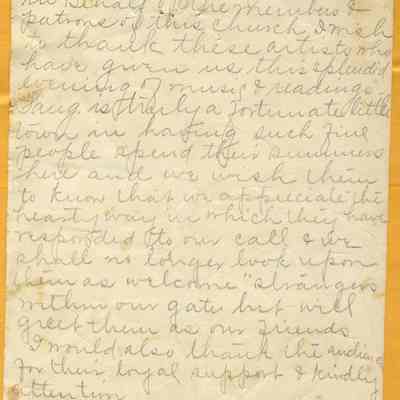 behalf of the members &
patrons of this church I wish
to thank these artists who
have given us this splendid
evening of music & readings.
is truly a fortunate little
town in having such fine
people spend their summers
here and we wish them
to know that we appreciate the
hearty way in which they have
responded to our call & we
shall no longer look upon
them as welcome "strangers
within our gate but will
greet them as our friends
I would also thank the audience
for their loyal support & kindly
attention